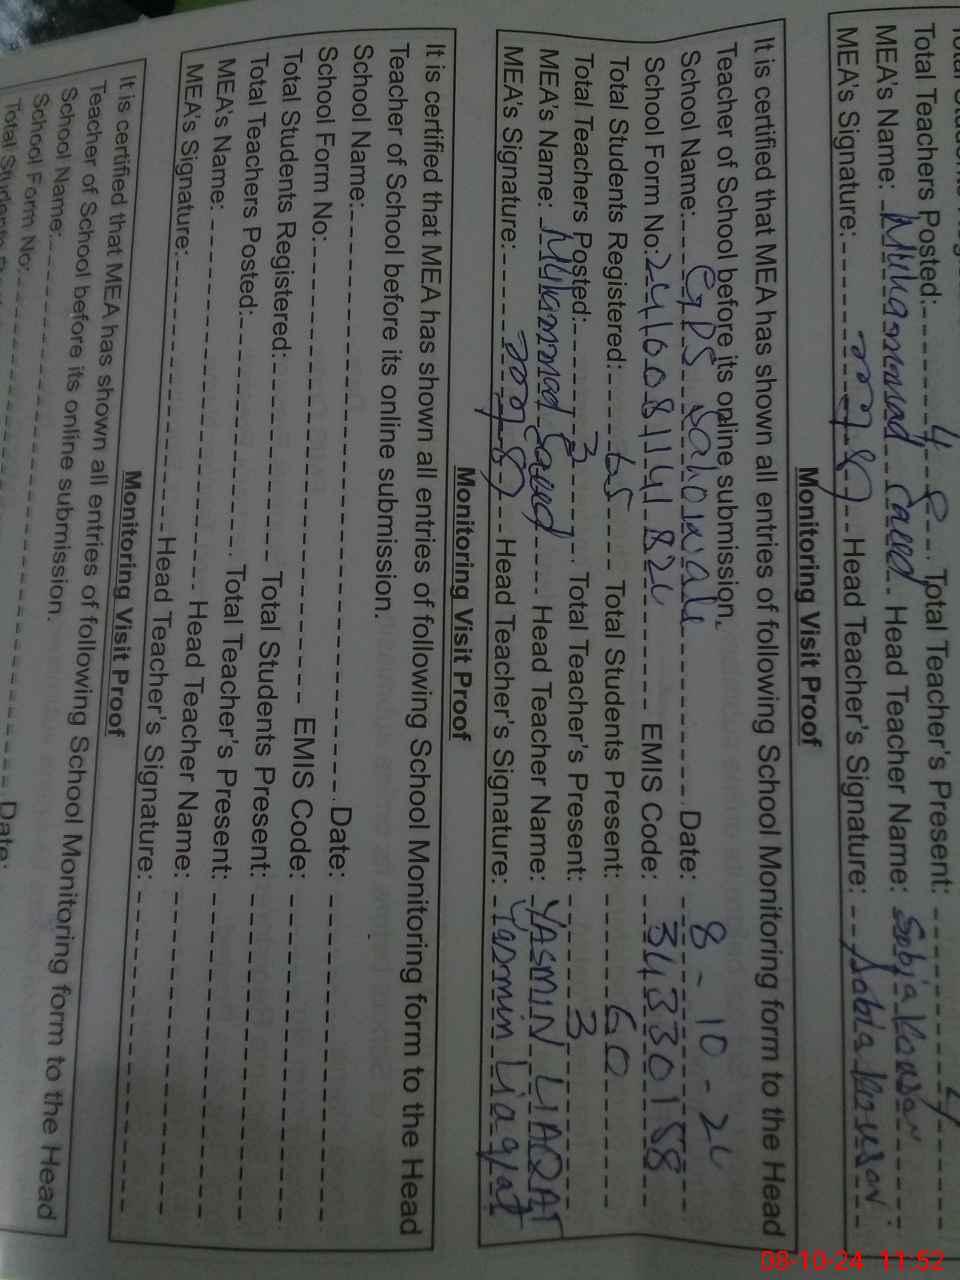 Total Teachers Posted: 4 Total Teacher's Present: 4
MEA's Name: Muhammad Saeed Head Teacher Name: Sobia Kousar
MEA's Signature: Head Teacher's Signature: Sobia Kousar
Monitoring Visit Proof
It is certified that MEA has shown all entries of following School Monitoring form to the Head
Teacher of School before its online submission.
School Name: GPS Sahowale Date: 8-10-24
School Form No: 2410081141824 EMIS Code: 34330158
Total Students Registered: 65 Total Students Present: 60
Total Teachers Posted: 3 Total Teacher's Present: 3
MEA's Name: Muhammad Saeed Head Teacher Name: YASMIN LIAQAT
MEA's Signature: Head Teacher's Signature: Yasmin Liaqat
Monitoring Visit Proof
It is certified that MEA has shown all entries of following School Monitoring form to the Head
Teacher of School before its online submission.
School Name: Date:
School Form No: EMIS Code:
Total Students Registered: Total Students Present:
Total Teachers Posted: Total Teacher's Present:
MEA's Name: Head Teacher Name:
MEA's Signature: Head Teacher's Signature:
Monitoring Visit Proof
It is certified that MEA has shown all entries of following School Monitoring form to the Head
Teacher of School before its online submission.
School Name:
School Form No: Date:
Total Students
08-10-24 11:52